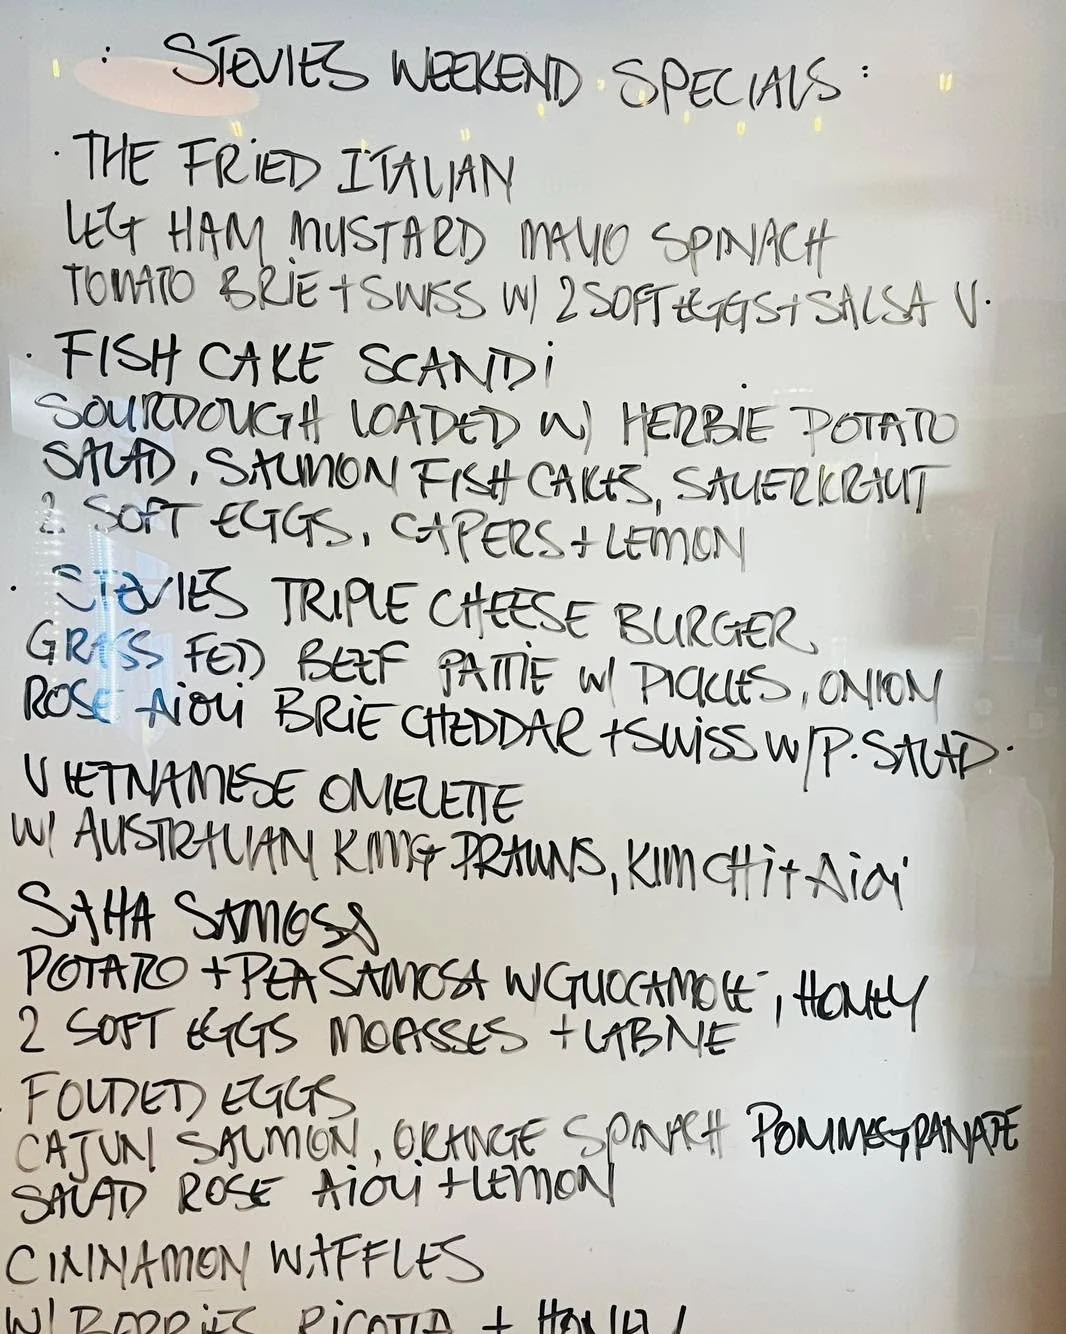 : STEVIES WEEKEND SPECIALS :
· THE FRIED ITALIAN
LEG HAM MUSTARD MAYO SPINACH
TOMATO BRIE + SWISS W/ 2 SOFT EGGS + SALSA V.
· FISH CAKE SCANDi
SOURDOUGH LOADED W/ HERBIE POTATO
SALAD, SALMON FISH CAKES, SAUERKRAUT
2 SOFT EGGS, CAPERS + LEMON
· STEVIES TRIPLE CHEESE BURGER
GRASS FED BEEF PATTIE W/ PICKLES, ONION
ROSE AiOLi BRIE CHEDDAR + SWiSS W/ P. SALAD.
VIETNAMESE OMELETTE
W/ AUSTRALIAN KING PRAWNS, KIMCHi + AiOLi
SAHA SAMOSA
POTATO + PEA SAMOSA W GUOCAMOLE, HONEY
2 SOFT EGGS MOLASSES + LABNE
· FOLDED EGGS
CAJUN SALMON, ORANGE SPINACH POMMEGRANATE
SALAD ROSE AiOLi + LEMON
CINNAMON WAFFLES
W/ BERRiES RiCOTTA + HONEY